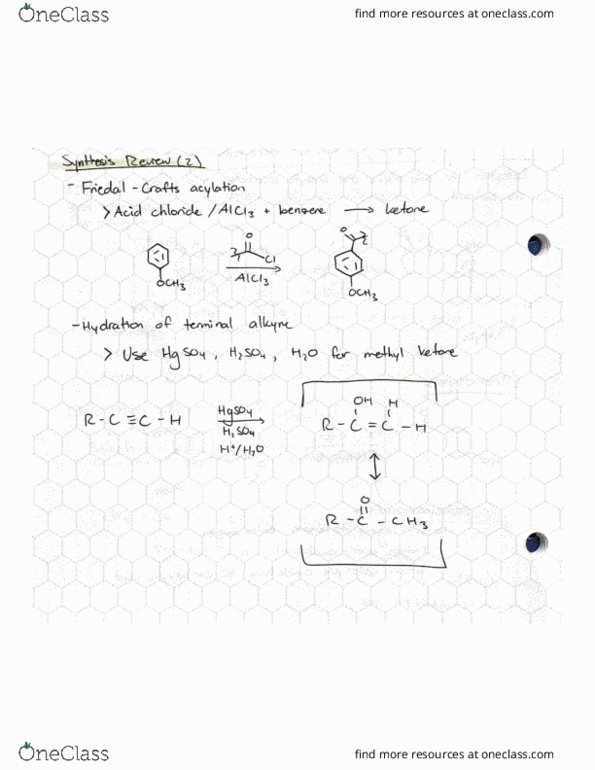 OneClass
find more resources at oneclass.com
Synthesis Review (2)
- Friedal - Crafts acylation
> Acid chloride / AlCl3 + benzene → ketone
O
Cl
AlCl3
OCH3
O
OCH3
- Hydration of terminal alkyne
> Use HgSO4, H2SO4, H2O for methyl ketone
R - C ≡ C - H
HgSO4
H2SO4
H+/H2O
OH H
R - C = C - H
↕
O
R - C - CH3
OneClass
find more resources at oneclass.com